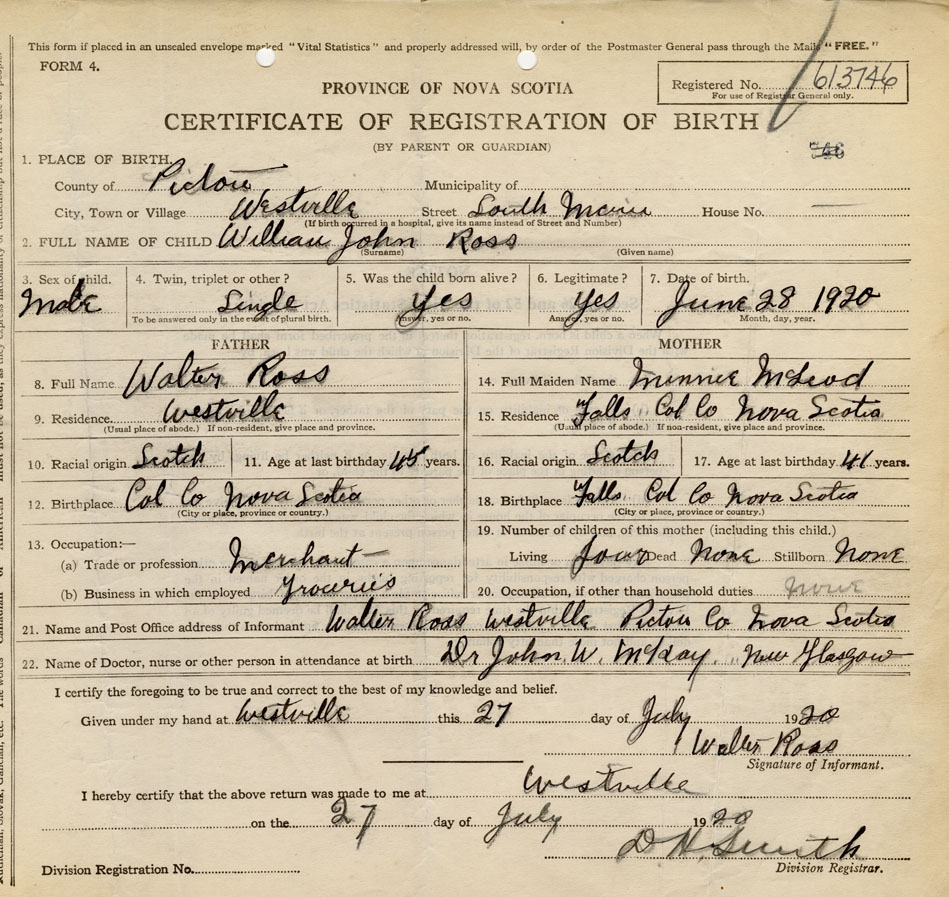 This form if placed in an unsealed envelope marked "Vital Statistics" and properly addressed will, by order of the Postmaster General pass through the Mails "FREE."
FORM 4.
Registered No. 613746
For use of Registrar General only.
PROVINCE OF NOVA SCOTIA
CERTIFICATE OF REGISTRATION OF BIRTH
(BY PARENT OR GUARDIAN)
1. PLACE OF BIRTH.
County of Pictou Municipality of
City, Town or Village Westville Street South Main House No. —
(If birth occurred in a hospital, give its name instead of Street and Number)
2. FULL NAME OF CHILD William John Ross
(Surname) (Given name)
3. Sex of child. 4. Twin, triplet or other? 5. Was the child born alive? 6. Legitimate? 7. Date of birth.
Male Single Yes Yes June 28 1920
To be answered only in the event of plural birth. Answer, yes or no. Answer, yes or no. Month, day, year.
FATHER
8. Full Name Walter Ross
9. Residence Westville
(Usual place of abode.) If non-resident, give place and province.
10. Racial origin Scotch 11. Age at last birthday 45 years.
12. Birthplace Col Co Nova Scotia
(City or place, province or country.)
13. Occupation:—
(a) Trade or profession Merchant
(b) Business in which employed Groceries
MOTHER
14. Full Maiden Name Minnie McLeod
15. Residence Falls Col Co Nova Scotia
(Usual place of abode.) If non-resident, give place and province.
16. Racial origin Scotch 17. Age at last birthday 41 years.
18. Birthplace Falls Col Co Nova Scotia
(City or place, province or country.)
19. Number of children of this mother (including this child.)
Living four Dead None Stillborn None
20. Occupation, if other than household duties None
21. Name and Post Office address of Informant Walter Ross Westville Pictou Co Nova Scotia
22. Name of Doctor, nurse or other person in attendance at birth Dr John W. McKay. New Glasgow
I certify the foregoing to be true and correct to the best of my knowledge and belief.
Given under my hand at Westville this 27 day of July 1920
Walter Ross
Signature of Informant.
I hereby certify that the above return was made to me at Westville
on the 27 day of July 1920
D H. Smith
Division Registrar.
Division Registration No.